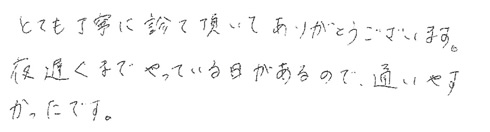 とても丁寧に診て頂いてありがとうございます。
夜遅くまでやっている日があるので、通いやす
かったです。